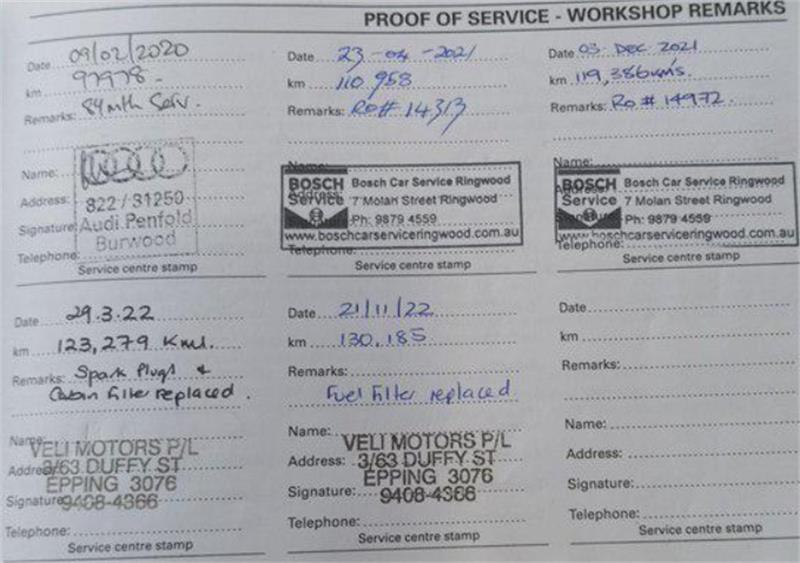 PROOF OF SERVICE - WORKSHOP REMARKS
Date 09/02/2020
km 97978 -
Remarks: 84 mth Serv.
Name:
Address: 822 / 31250
Signature: Audi Penfold
Burwood
Telephone:
Service centre stamp
Date 23-04-2021
km 110 958
Remarks: RO# 14313
Name:
BOSCH Bosch Car Service Ringwood
Address:
Service 7 Molan Street Ringwood
Ph: 9879 4559
www.boschcarserviceringwood.com.au
Telephone:
Service centre stamp
Date 03 Dec 2021
km 119,386kms
Remarks: Ro # 14972.
Name:
BOSCH Bosch Car Service Ringwood
Address:
Service 7 Molan Street Ringwood
Signature:
Ph: 9879 4559
www.boschcarserviceringwood.com.au
Telephone:
Service centre stamp
Date 29.3.22
km 123,279 Kms.
Remarks: Spark Plugs &
Cabin Filter replaced.
Name:
VELI MOTORS P/L
Address: 3/63 DUFFY ST
EPPING 3076
Signature: 9408-4366
Telephone:
Service centre stamp
Date 21/11/22
km 130,185
Remarks:
Fuel Filter replaced
Name:
VELI MOTORS P/L
Address: 3/63 DUFFY ST
EPPING 3076
Signature: 9408-4366
Telephone:
Service centre stamp
Date
km
Remarks:
Name:
Address:
Signature:
Telephone:
Service centre stamp